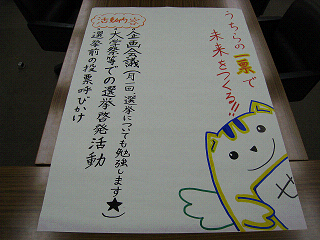 うちらの一票で
未来をつくる!!
活動内容
企画会議(月一回 選挙についても勉強します★)
大学祭等での選挙啓発活動
選挙前の投票呼びかけ
せ